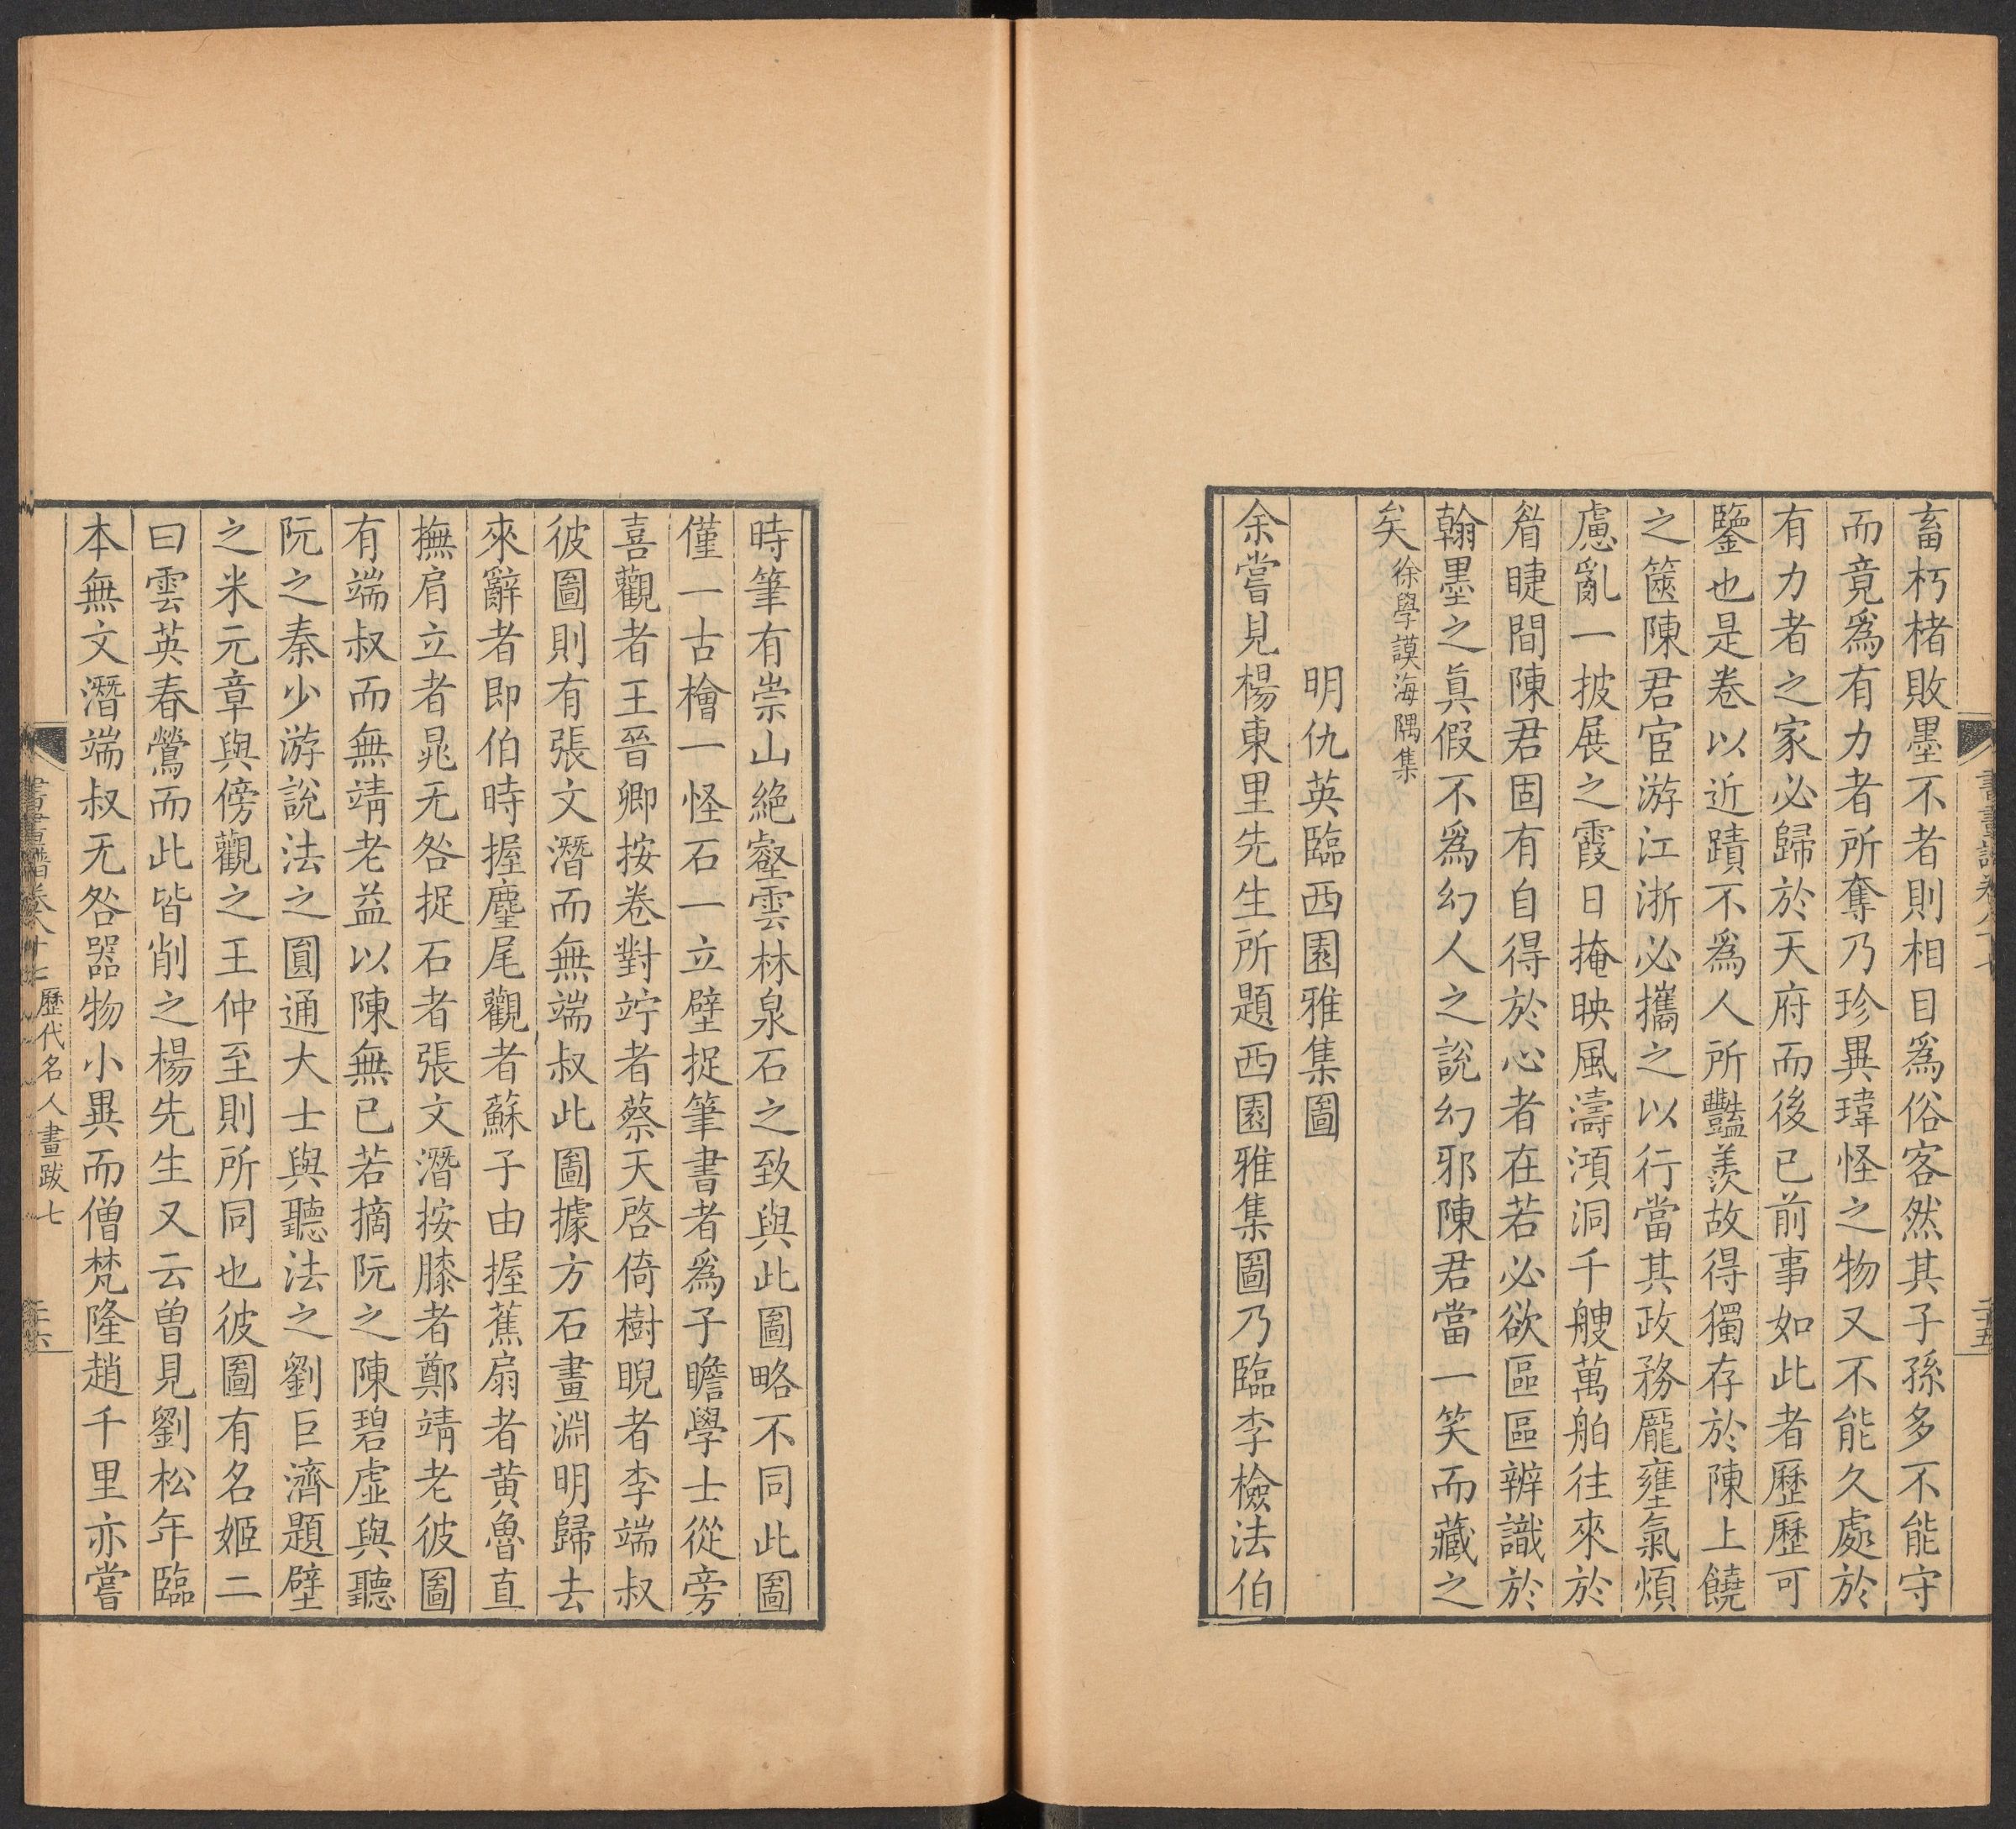 畜朽楮敗墨不者則相目爲俗客然其子孫多不能守
而竟爲有力者所奪乃珍異瑋怪之物又不能久處於
有力者之家必歸於天府而後已前事如此者歷歷可
鑒也是卷以近蹟不爲人所豔羨故得獨存於陳上饒
之篋陳君宦游江浙必攜之以行當其政務厖壅氣煩
慮亂一披展之霞日掩映風濤澒洞千艘萬舶往來於
眥睫間陳君固有自得於心者在若必欲區區辨識於
翰墨之眞假不爲幻人之說幻邪陳君當一笑而藏之
矣徐學謨海隅集
明仇英臨西園雅集圖
余嘗見楊東里先生所題西園雅集圖乃臨李檢法伯
時筆有崇山絶壑雲林泉石之致與此圖略不同此圖
僅一古檜一怪石一立壁捉筆書者爲子瞻學士從旁
喜觀者王晉卿按卷對竚者蔡天啓倚樹睨者李端叔
彼圖則有張文潛而無端叔此圖據方石畫淵明歸去
來辭者即伯時握麈尾觀者蘇子由握蕉扇者黃魯直
撫肩立者晁无咎捉石者張文潛按膝者鄭靖老彼圖
有端叔而無靖老益以陳無已若摘阮之陳碧虛與聽
阮之秦少游說法之圓通大士與聽法之劉巨濟題壁
之米元章與傍觀之王仲至則所同也彼圖有名姬二
曰雲英春鶯而此皆削之楊先生又云曾見劉松年臨
本無文潛端叔无咎器物小異而僧梵隆趙千里亦嘗
書畫譜卷八十七 歷代名人畫跋七 二十六